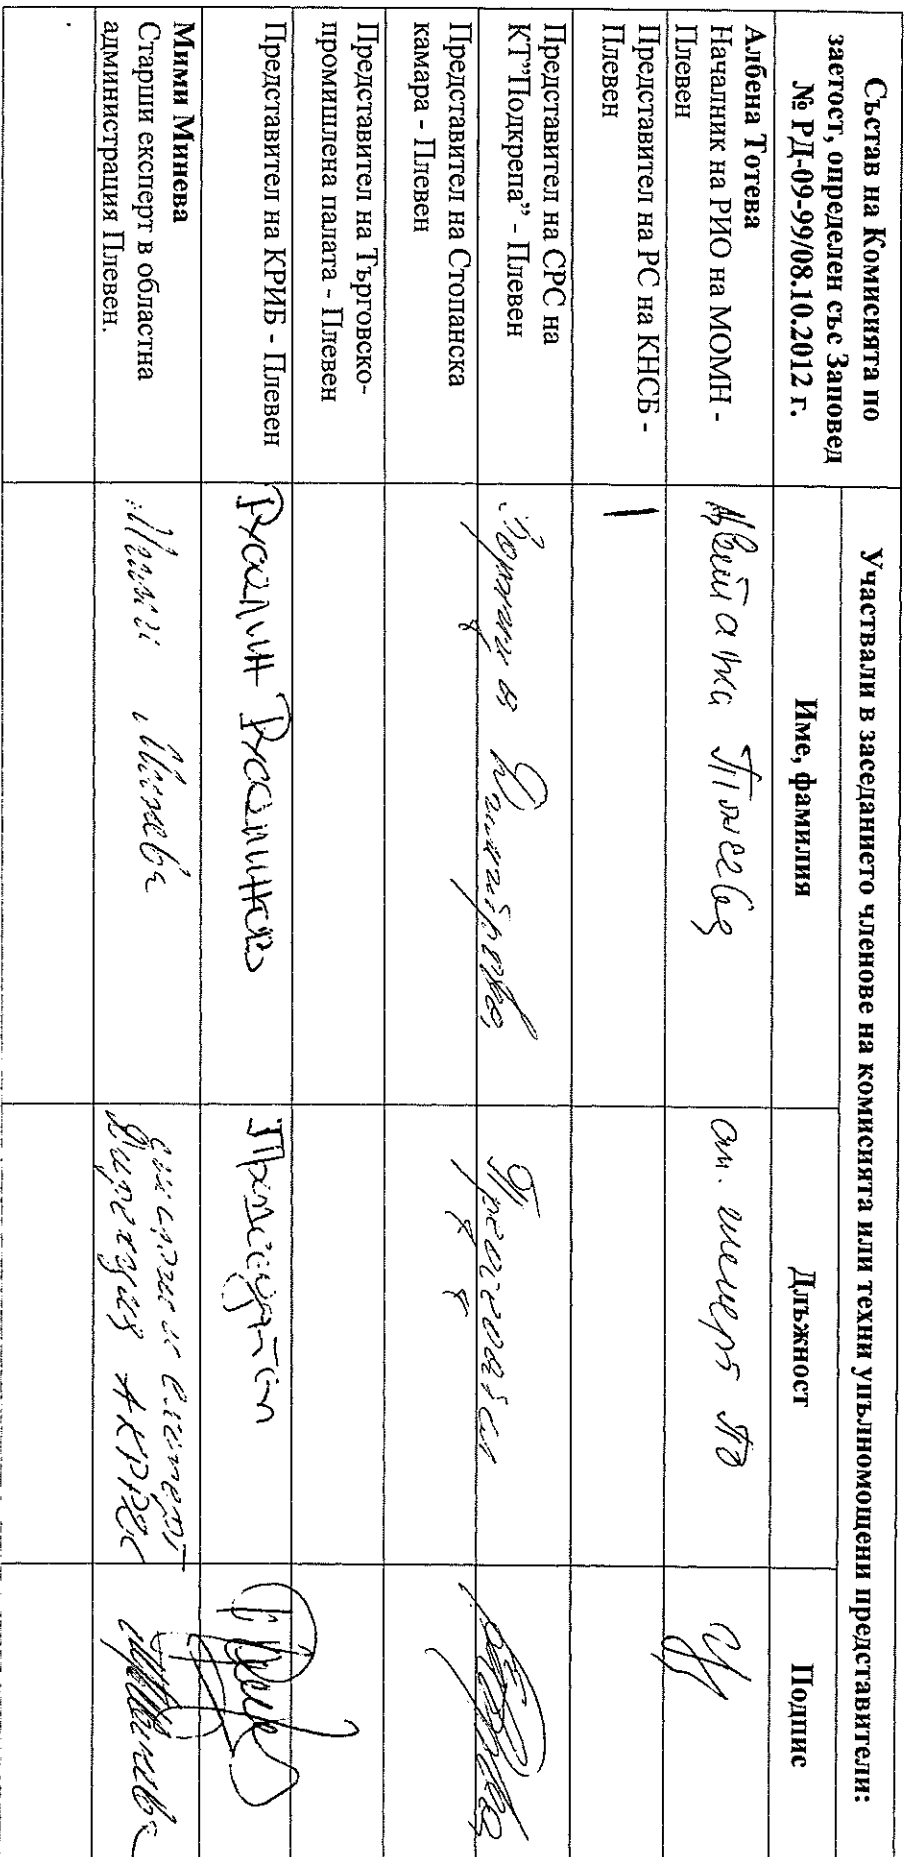 Състав на Комисията по
заетост, определен със Заповед
№ РД-09-99/08.10.2012 г.
Участвали в заседанието членове на комисията или техни упълномощени представители:
Име, фамилия
Длъжност
Подпис
Албена Тотева
Началник на РИО на МОМН -
Плевен
Цветанка
ст. експерт по
Представител на РС на КНСБ -
Плевен
Представител на СРС на
КТ"Подкрепа" - Плевен
Димитрова
Председател
Представител на Стопанска
камара - Плевен
Представител на Търговско-
промишлена палата - Плевен
Представител на КРИБ - Плевен
Русалин Русалинов
Председател
Мими Минева
Старши експерт в областна
администрация Плевен.
Мими Минева
експерт
Дирекция АКРРДС